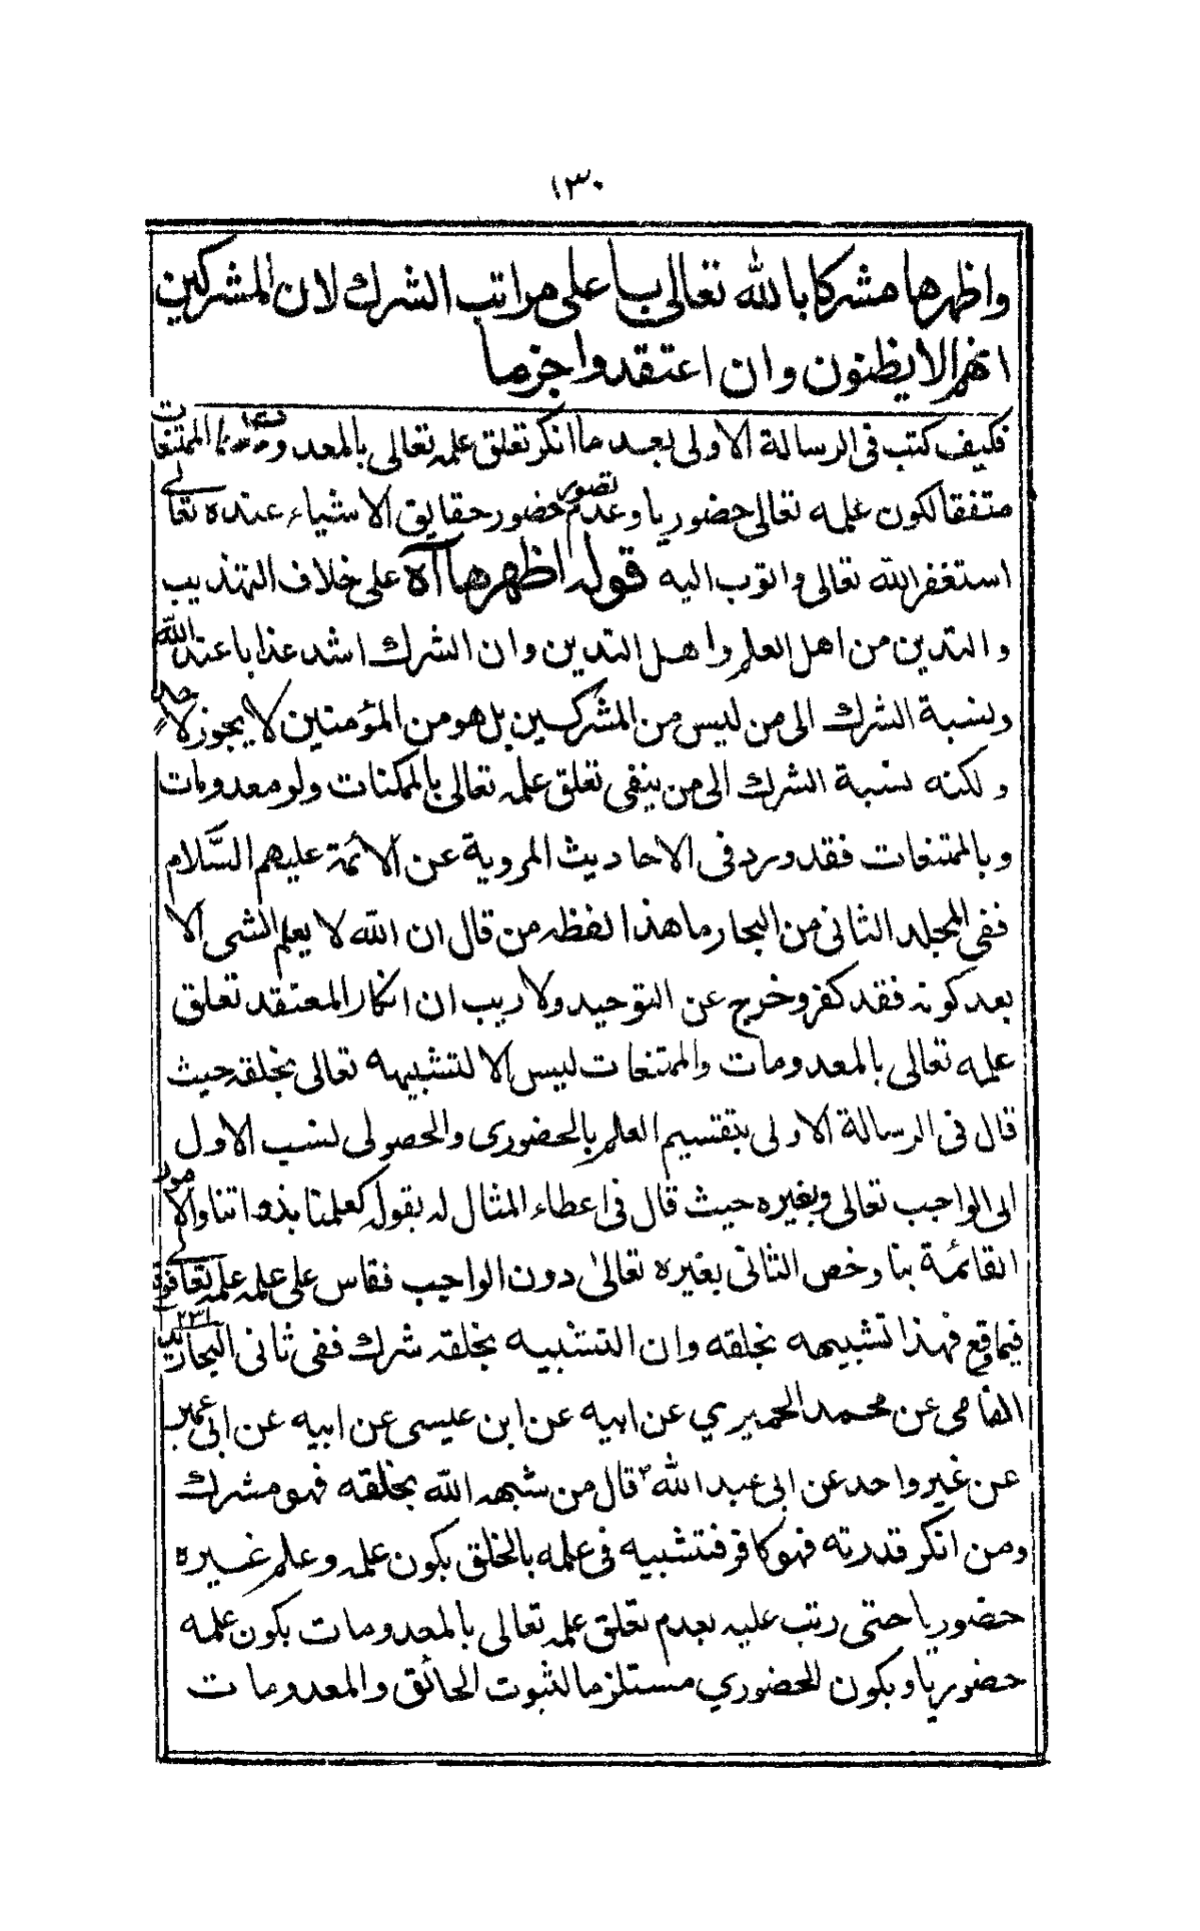 ١٣٠
واظهرها مشركا بالله تعالى باعلى مراتب الشرك لان المشركين
انهم الا يظنون وان اعتقدوا جزما
فكيف كتب فى الرسالة الاولى بعد ما انكر تعلق علمه تعالى بالمعدومات والممتنعات
متفقا لكون علمه تعالى حضوريا وعدم تصور حضور حقايق الاشياء عنده تعالى
استغفر الله تعالى واتوب اليه قوله اظهرها آه على خلاف التهذيب
والتدين من اهل العلم واهل التدين وان الشرك اشد عذابا عند الله
ونسبة الشرك الى من ليس من المشركين بل هو من المؤمنين لا يجوز لاحد
ولكنه نسبة الشرك الى من ينفى تعلق علمه تعالى بالممكنات ولو معدومات
وبالممتنعات فقد ورد فى الاحاديث المروية عن الائمة عليهم السلام
ففى المجلد الثانى من البحار ما هذا لفظه من قال ان الله لا يعلم الشى الا
بعد كونه فقد كفر وخرج عن التوحيد ولا ريب ان انكار المعتقد تعلق
علمه تعالى بالمعدومات والممتنعات ليس الا لتشبيهه تعالى بخلقه حيث
قال فى الرسالة الاولى بتقسيم العلم بالحضورى والحصولى لنسب الاول
الى الواجب تعالى وبغيره حيث قال فى اعطاء المثال له بقوله كعلمنا بذواتنا والامور
القائمة بنا وخص الثانى بغيره تعالىٰ دون الواجب فقاس على علمه علمه تعالى فوقع
فيما وقع فهذا تشبيهه بخلقه وان التشبيه بخلقه شرك ففى ثانى البحار ٢٣١
الفامى عن محمد الحميري عن ابيه عن ابن عيسى عن ابيه عن ابى عمير
عن غير واحد عن ابى عبد الله قال من شبهه الله بخلقه فهو مشرك
ومن انكر قدرته فهو كافر فتشبيه فى علمه بالخلق بكون علمه وعلم غيره
حضوريا حتى رتب عليه بعدم تعلق علمه تعالى بالمعدومات بكون علمه
حضوريا وبكون الحضوري مستلزما لثبوت الحائق والمعدومات